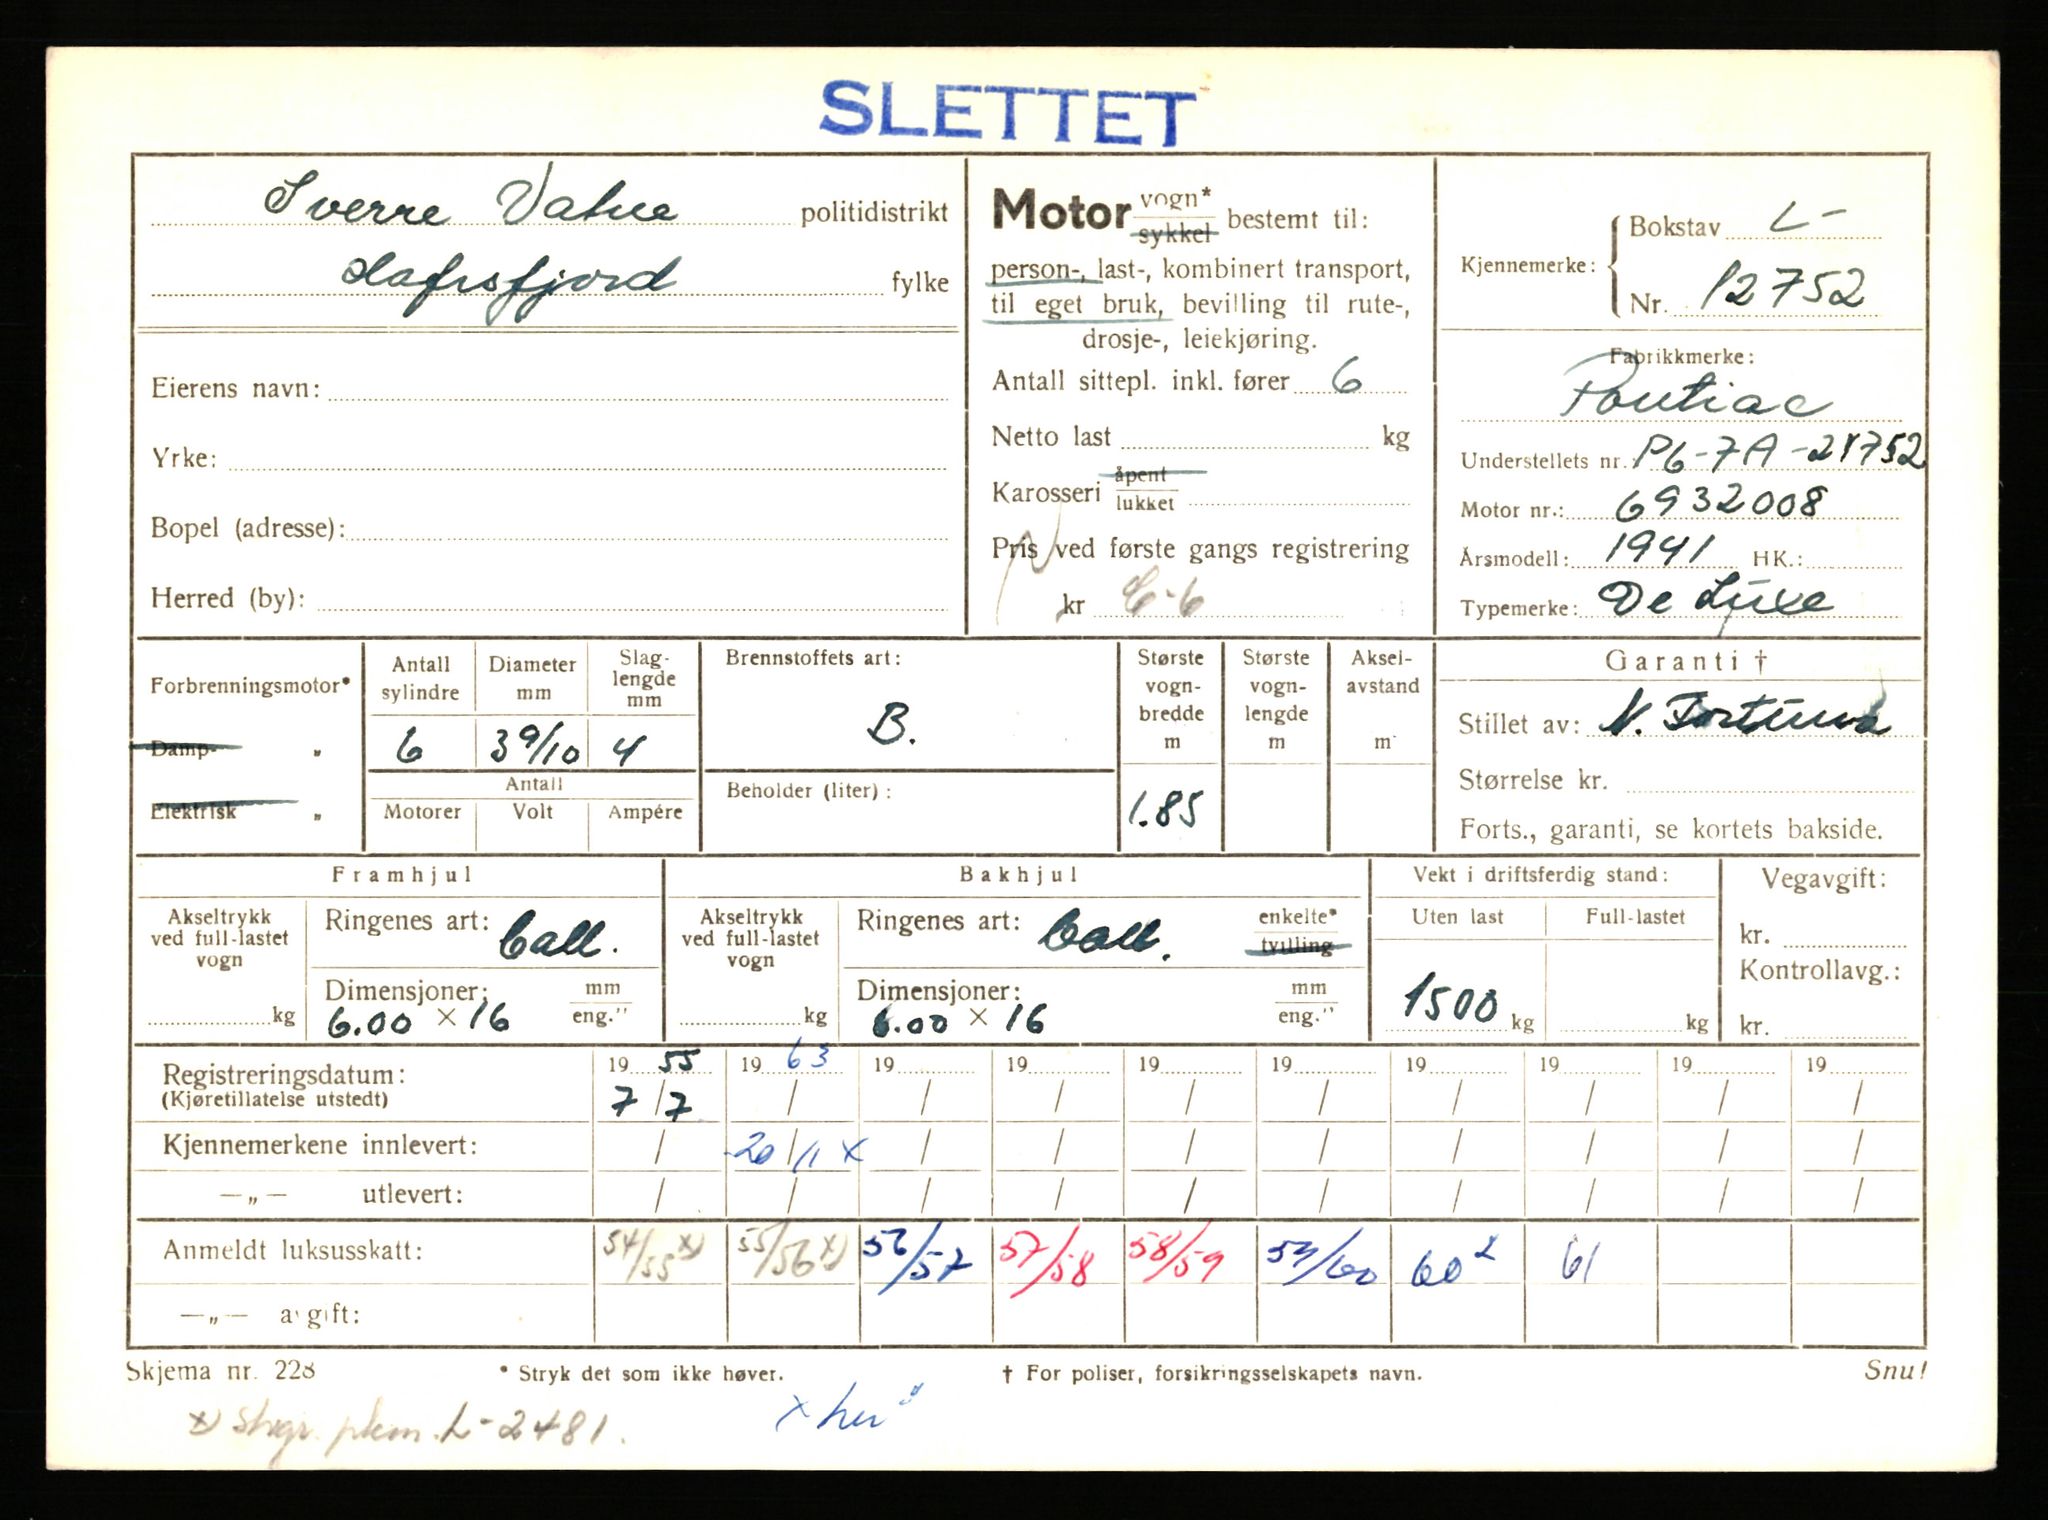 SLETTET
Sverre Vatne politidistrikt
Hafrsfjord fylke
Eierens navn:
Yrke:
Bopel (adresse):
Herred (by):
Motor vogn* sykkel bestemt til:
person-, last-, kombinert transport,
til eget bruk, bevilling til rute-,
drosje-, leiekjøring.
Antall sittepl. inkl. fører 6
Netto last kg
Karosseri åpent lukket
Pris ved første gangs registrering
kr
Kjennemerke: Bokstav L-
Nr. 12752
Fabrikkmerke:
Pontiac
Understellets nr. P6-7A-21752
Motor nr.: 6932008
Årsmodell: 1941 HK.:
Typemerke: De Luxe
Forbrenningsmotor*
Damp- "
Elektrisk "
Antall sylindre 6
Diameter mm 3 9/10
Slag-lengde mm 4
Antall
Motorer Volt Ampére
Brennstoffets art:
B.
Beholder (liter):
Største vogn-bredde m 1.85
Største vogn-lengde m
Aksel-avstand m
Garanti †
Stillet av: N. Fortuna
Størrelse kr.
Forts., garanti, se kortets bakside.
Framhjul
Akseltrykk ved full-lastet vogn kg
Ringenes art: Ball.
Dimensjoner: mm eng."
6.00 × 16
Bakhjul
Akseltrykk ved full-lastet vogn kg
Ringenes art: Ball. enkelte* tvilling
Dimensjoner: mm eng."
6.00 × 16
Vekt i driftsferdig stand:
Uten last Full-lastet
1500 kg kg
Vegavgift:
kr.
Kontrollavg.:
kr.
Registreringsdatum: 19 55 19 63 19 19 19 19 19 19 19 19
(Kjøretillatelse utstedt) 7/7 / / / / / / / / /
Kjennemerkene innlevert: / 20/11 x / / / / / / / /
—„— utlevert: / / / / / / / / / /
Anmeldt luksusskatt: 54/55 x) 55/56 x) 56/57 57/58 58/59 59/60 60 x 61
—„— avgift:
Skjema nr. 228 * Stryk det som ikke høver. † For poliser, forsikringsselskapets navn. Snu!
x) L-2481.
x her